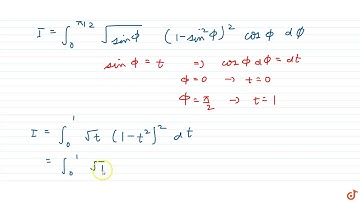 I = ∫₀^π/2 √sinφ (1-sin²φ)² cosφ dφ
sinφ = t ⇒ cosφ dφ = dt
φ=0 → t=0
φ=π/2 → t=1
I = ∫₀¹ √t (1-t²)² dt
= ∫₀¹ √